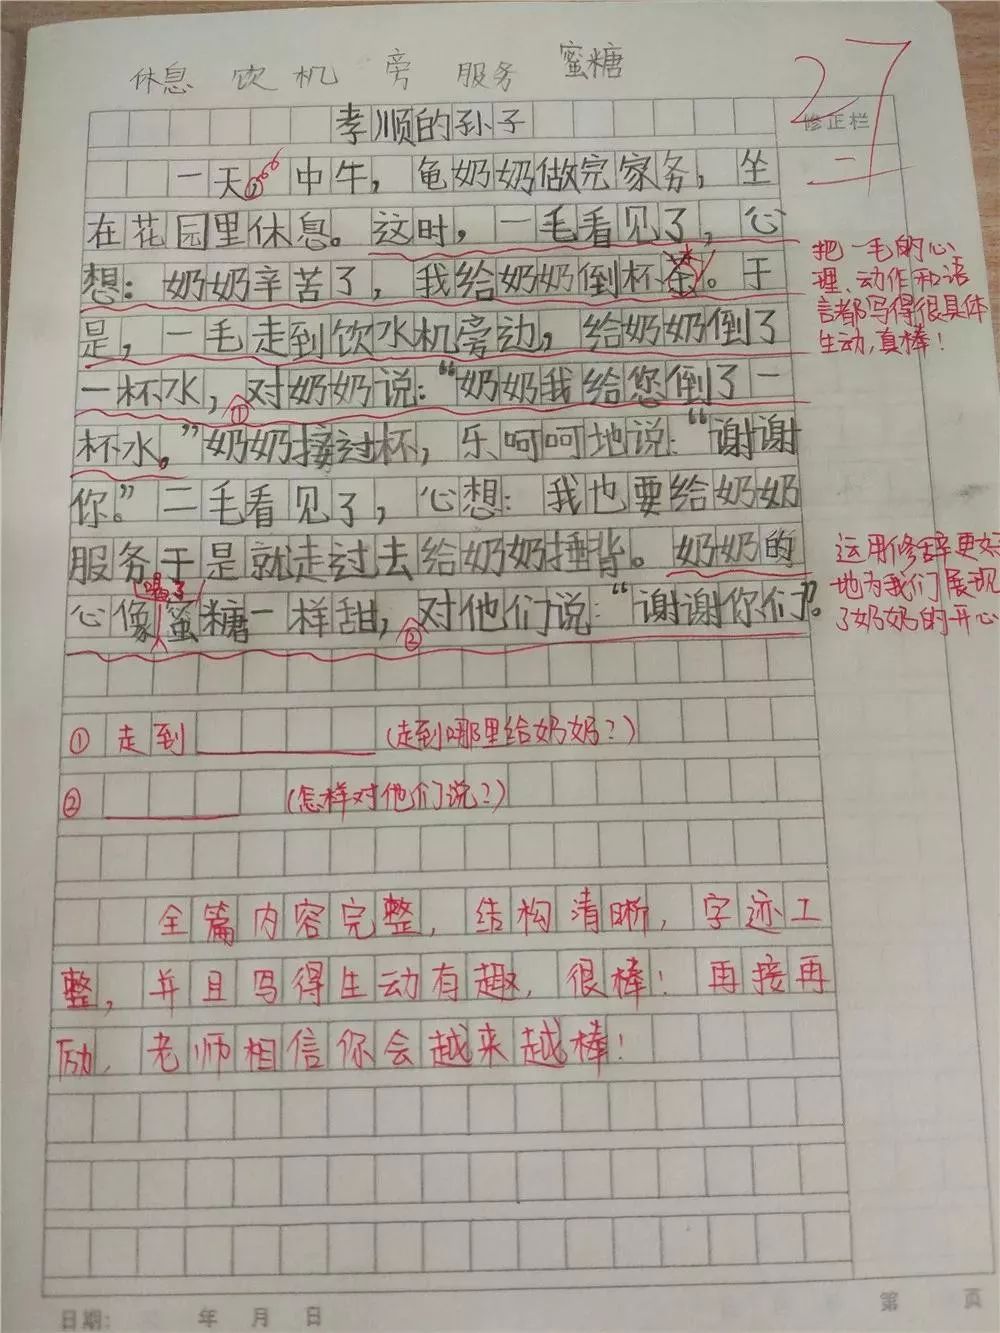 休息 饮 机 旁 服务 蜜糖
27
孝顺的孙子
修正栏
一天 中牛，龟奶奶做完家务，坐
二
在花园里休息。这时，一毛看见了，心
想：奶奶辛苦了，我给奶奶倒杯茶。于
把一毛的心
理、动作和语
言都写得很具体
生动，真棒！
是，一毛走到饮水机旁边，给奶奶倒了
一杯水，对奶奶说：“奶奶我给您倒了一
①
杯水。”奶奶接过杯，乐呵呵地说：“谢谢
你。”二毛看见了，心想：我也要给奶奶
服务于是就走过去给奶奶捶背。奶奶的
运用修辞更好
地为我们展现
了奶奶的开心
喝了
心像蜜糖一样甜，对他们说：“谢谢你们”。
②
① 走到 (走到哪里给奶奶？)
② (怎样对他们说？)
全篇内容完整，结构清晰，字迹工
整，并且写得生动有趣，很棒！再接再
励，老师相信你会越来越棒！
日期： 年 月 日
第 页